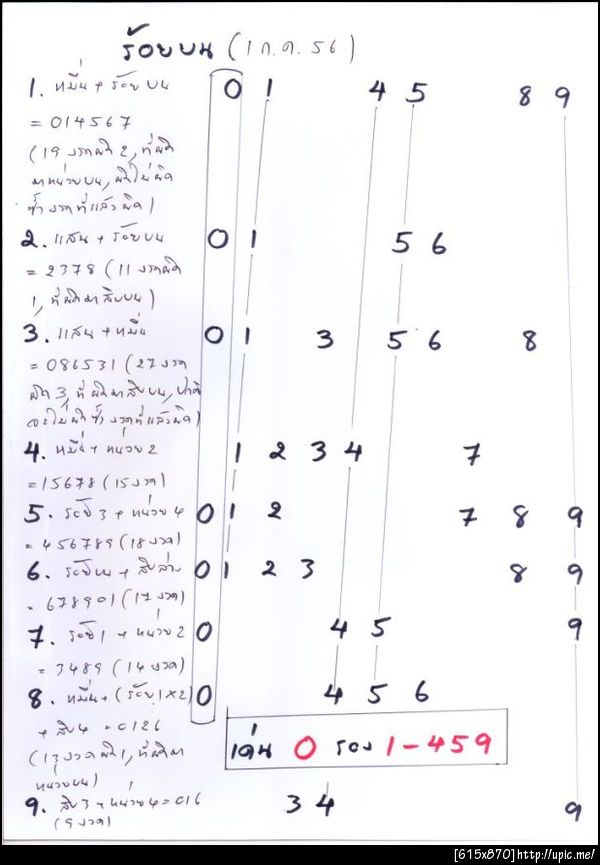 ร้อยบน (1 ก.ค. 56)
1. หมื่น + ร้อยบน 0 1 4 5 8 9
= 014567
(19 งวดผิด 2, ที่ผิด
มาหน่วยบน, ผิดไม่ผิด
ซ้ำงวดที่แล้วผิด)
2. แสน + ร้อยบน 0 1 5 6
= 2378 (11 งวดผิด
1, ที่ผิดมาสิบบน)
3. แสน + หมื่น 0 1 3 5 6 8
= 086531 (27 งวด
ผิด 3, ที่ผิดมาสิบบน, ปกติ
จะไม่ผิดซ้ำงวดที่แล้วผิด)
4. หมื่น + หน่วย 2 1 2 3 4 7
= 15678 (15 งวด)
5. ร้อย 3 + หน่วย 4 0 1 2 7 8 9
= 456789 (18 งวด)
6. ร้อยบน + สิบล่าง 0 1 2 3 8 9
= 678901 (17 งวด)
7. ร้อย 1 + หน่วย 2 0 4 5 9
= 3489 (14 งวด)
8. หมื่น + (ร้อย 1 x 2) 0 4 5 6
+ สิบ 4 = 0126
(13 งวดผิด 1, ที่ผิดมา
หน่วยบน)
เด่น 0 รอง 1-459
9. สิบ 3 + หน่วย 4 = 016 3 4 9
(9 งวด)
[615x870]http://upic.me/